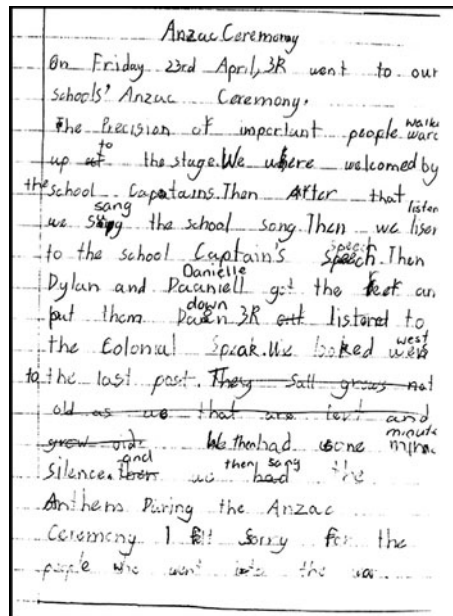 Anzac Ceremony
On Friday 23rd April, 3R went to our
schools' Anzac Ceremony.
The Precision of important people walk
up to the stage. We where welcomed by
the school Capatains. Then After that
we sang the school song. Then we listen
to the school Captain's speech. Then
Dylan and Danielle got the an
put them down 3R listened to
the Colonial Speak. We looked west
to the last post. They sall grow not
old as we that are left and
grow old. We then had one minute
silence. and we then sang the
Anthems During the Anzac
Ceremony I felt Sorry for the
people who went into the war